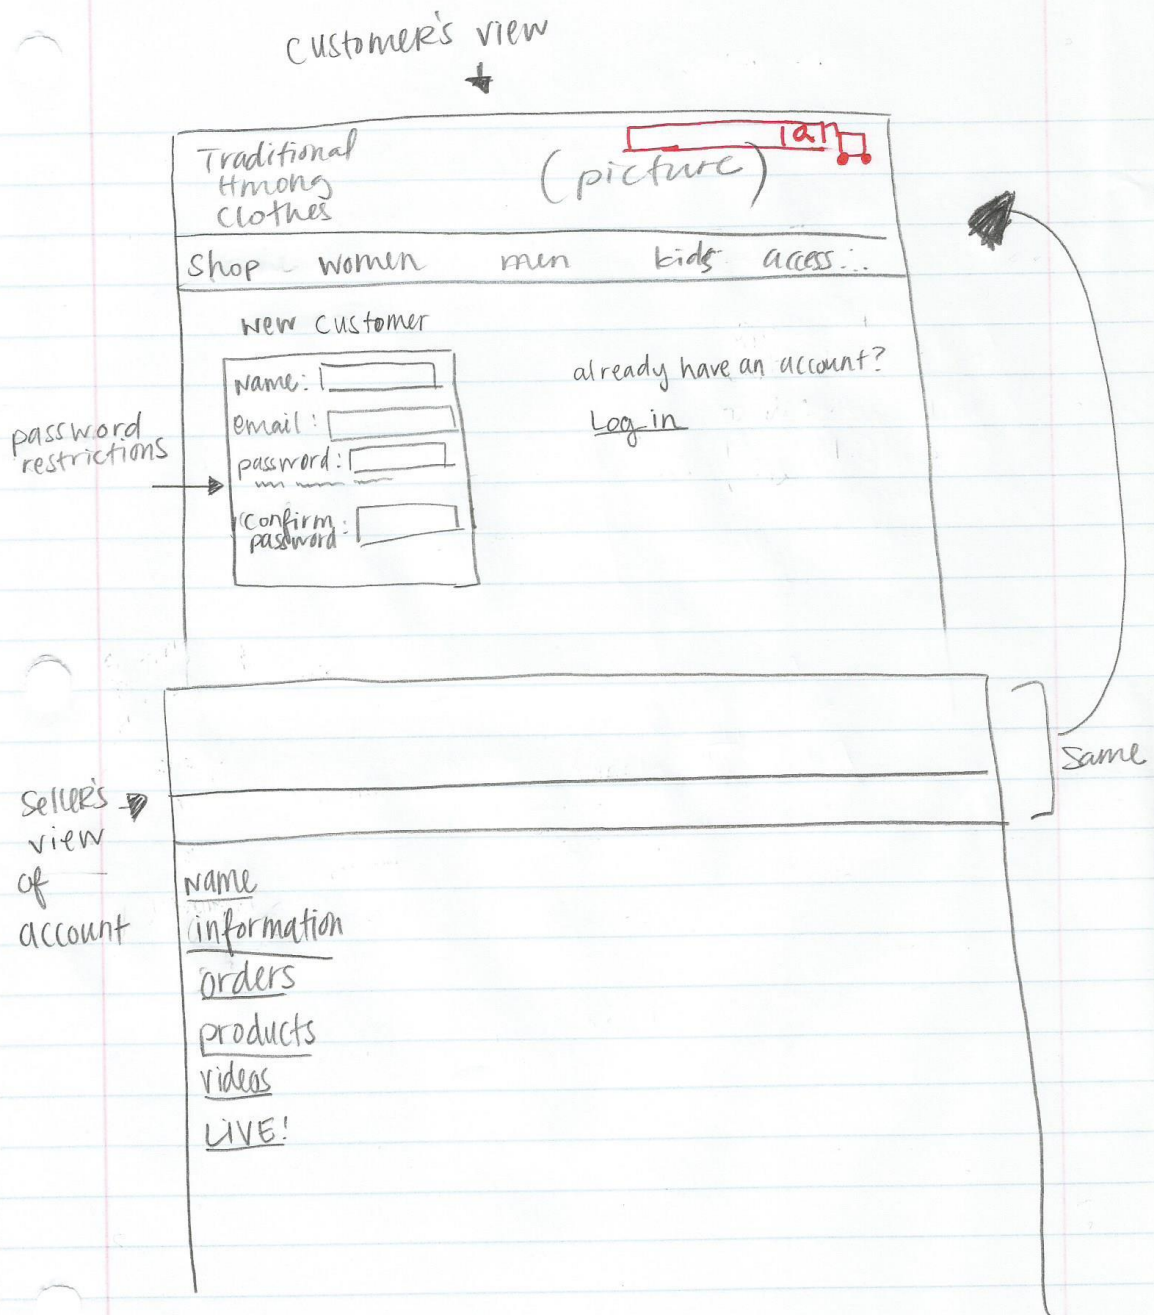 customer's view
Traditional
Hmong
Clothes
(picture)
Shop women men kids access...
New customer
Name:
email:
password:
confirm:
password
already have an account?
Log in
password
restrictions
Same
Seller's
view
of
account
Name
information
orders
products
videos
LIVE!